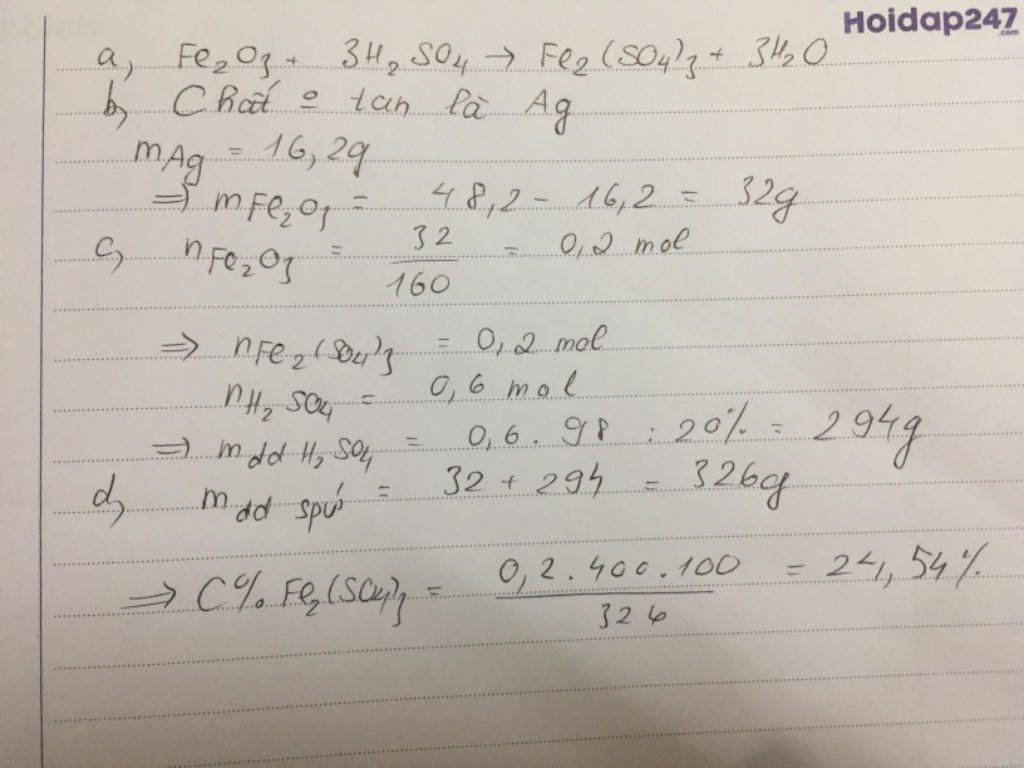 Hoidap247
.com
a, Fe₂O₃ + 3H₂SO₄ → Fe₂(SO₄)₃ + 3H₂O
b, Chất o tan là Ag
mAg = 16,2g
=> mFe₂O₃ = 48,2 - 16,2 = 32g
c, nFe₂O₃ = 32/160 = 0,2 mol
=> nFe₂(SO₄)₃ = 0,2 mol
nH₂SO₄ = 0,6 mol
=> mdd H₂SO₄ = 0,6 . 98 : 20% = 294g
d, mdd spứ = 32 + 294 = 326g
=> C% Fe₂(SO₄)₃ = 0,2.400.100/326 = 24,54%